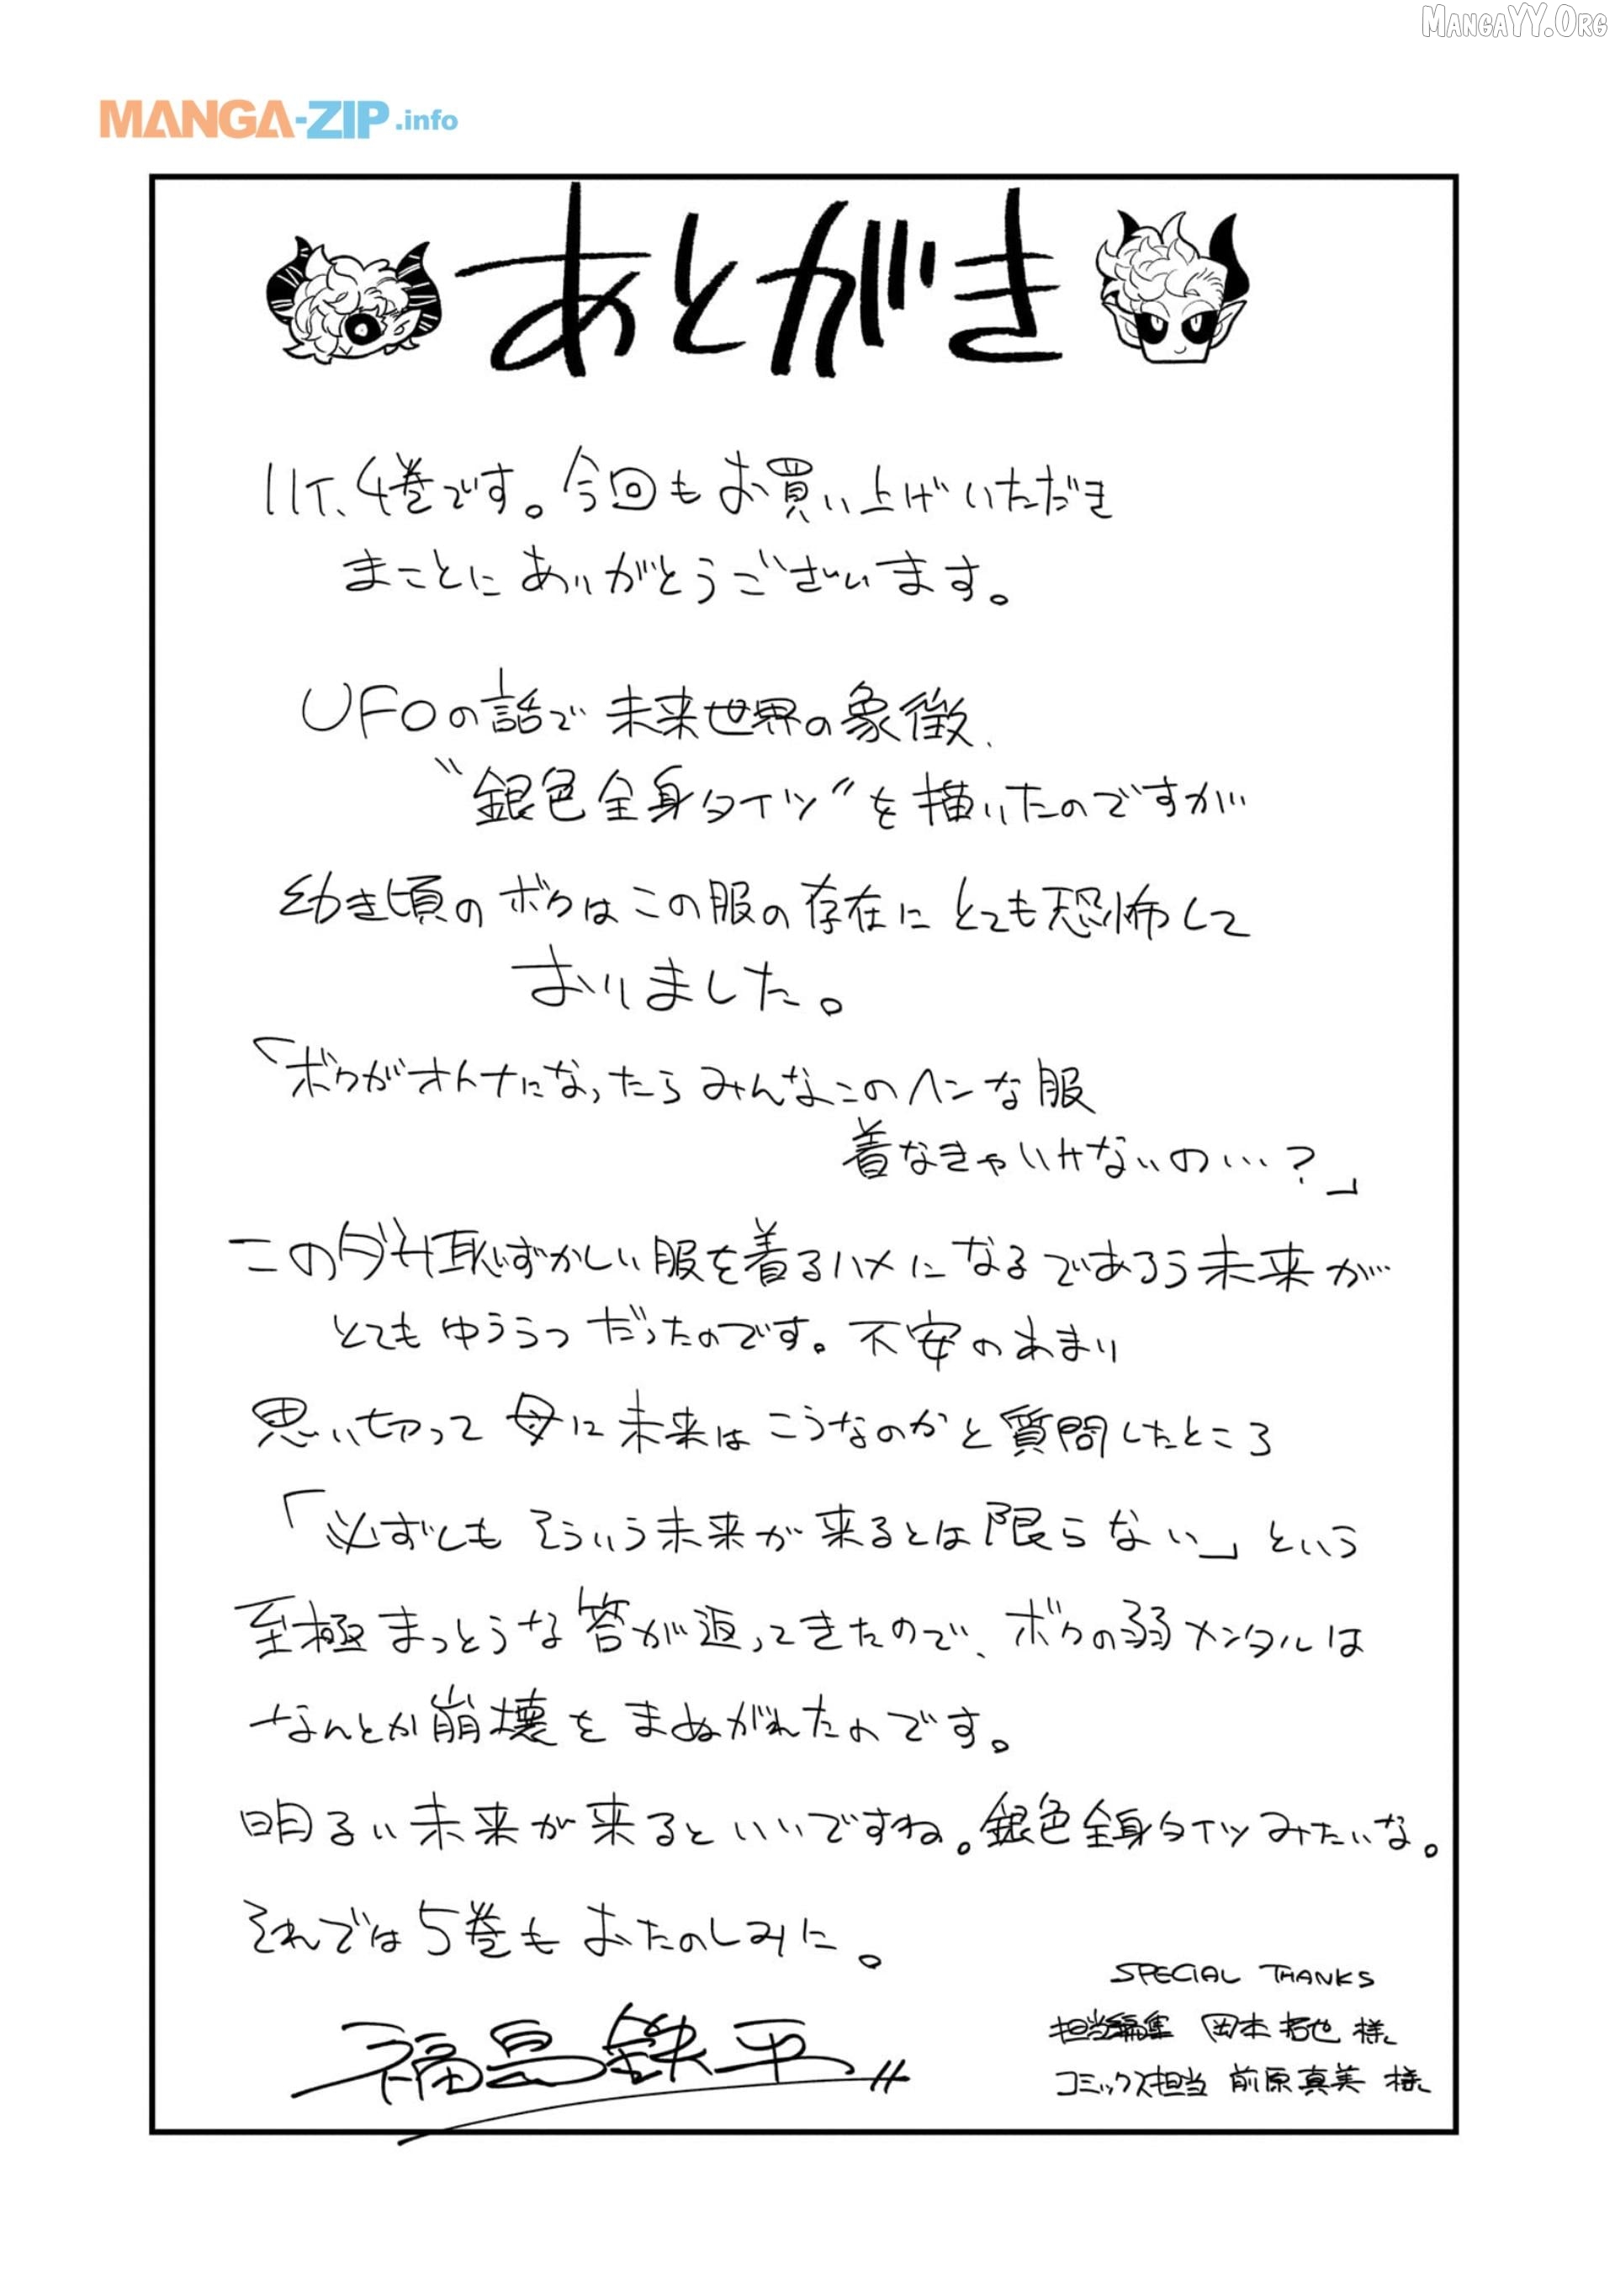 MANGAYY.ORG
MANGA-ZIP.info
あとがき
ハイ、4巻です。今回もお買い上げいただき
まことにありがとうございます。
UFOの話で未来世界の象徴、
〝銀色全身タイツ〟を描いたのですが
幼き頃のボクはこの服の存在にとても恐怖して
おりました。
「ボクがオトナになったらみんなこのヘンな服
着なきゃいけないの…?」
このダサ恥ずかしい服を着るハメになるであろう未来が
とてもゆううつだったのです。不安のあまり
思い切って母に未来はこうなのかと質問したところ
「必ずしもそういう未来が来るとは限らない」という
至極まっとうな答が返ってきたので、ボクの弱メンタルは
なんとか崩壊をまぬがれたのです。
明るい未来が来るといいですね。銀色全身タイツみたいな。
それでは5巻もおたのしみに。
福島鉄平
SPECIAL THANKS
担当編集 岡本拓也様
コミックス担当 前原真美様